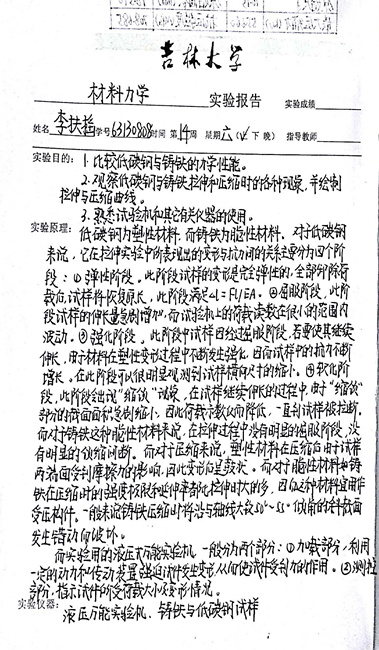 吉林大学
材料力学 实验报告 实验成绩
姓名 李扶 学号 63130808 时间 第14周 星期六 (上 下 晚) 指导教师
实验目的: 1. 比较低碳钢与铸铁的力学性能。
2. 观察低碳钢与铸铁拉伸和压缩时的各种现象,并绘制
拉伸与压缩曲线。
3. 熟悉试验机和其它有关仪器的使用。
实验原理: 低碳钢为塑性材料,而铸铁为脆性材料、对于低碳钢
来说,它在拉伸实验中所表现出的变形与抗力间的关系主要分四个阶
段:①弹性阶段。此阶段试样的变形是完全弹性的,全部卸除荷
载后,试样将恢复原长,此阶段满足△l=Fl/EA. ②屈服阶段,此阶
段试样的伸长量急剧增加,而试验机上的荷载读数在很小的范围内
波动。③强化阶段,此阶段中试样因经过屈服阶段,若要使其继续
伸长,由于材料在塑性变形过程中不断发生强化,因而试样中的抗力不断
增长。在此阶段可以很明显观测到试样横向尺寸的缩小。④软化阶
段,此阶段会出现“缩颈”现象,在试样继续伸长的过程中,由于“缩颈”
部分的截面面积急剧缩小,因此荷载读数反而降低,一直到试样被拉断。
而对于铸铁这种脆性材料来说,在拉伸过程中没有明显的屈服阶段,没
有明显的颈缩阶断。而对于压缩来说,塑性材料在压缩后由于试样
两端面受到摩擦力的影响,因此变形后呈鼓状。而对于脆性材料如铸
铁在压缩时的强度极限和延伸率都比拉伸时大的多,因此这种材料宜用作
受压构件。一般来说铸铁压缩时将沿与轴线大致50°~55°倾角的斜截面
发生错动而破坏。
而实验用的液压式万能实验机,一般分为两个部分:①加载部分,利用
一定的动力和传动装置强迫试件发生变形从而使试件受到力的作用。②测控
部分,指示试件所受荷载大小及变形情况。
实验仪器: 液压万能实验机、铸铁与低碳钢试样